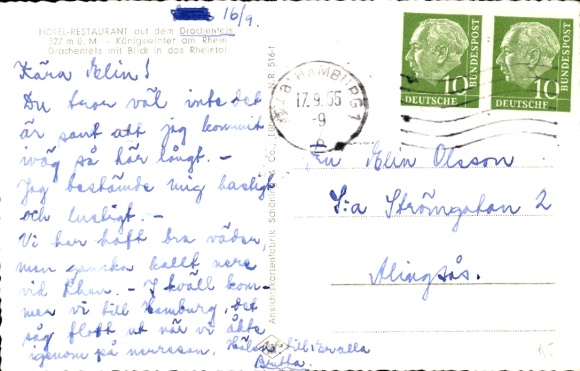 16/9.
HOTEL-RESTAURANT auf dem Drachenfels
327 m ü. M. - Königswinter am Rhein
Drachenfels mit Blick in das Rheintal
Kära Elin!
Du tror väl inte det
är sant att jag kommit
iväg så här långt. –
Jag bestämde mig hastigt
och lustigt. –
Vi har haft bra väder,
men ganska kallt nere
vid Rhen. – I kväll kom-
mer vi till Hamburg, det
såg flott ut när vi åkte
igenom på nerresan. Hälsn. till Er alla
Bertha.
Ansichtskartenfabrik Schöning & Co., N.R. 516-1
HAMBURG 1
17.9.55
-9
10
DEUTSCHE
BUNDESPOST
10
DEUTSCHE
BUNDESPOST
Elin Olsson
S:a Strömgatan 2
Alingsås.